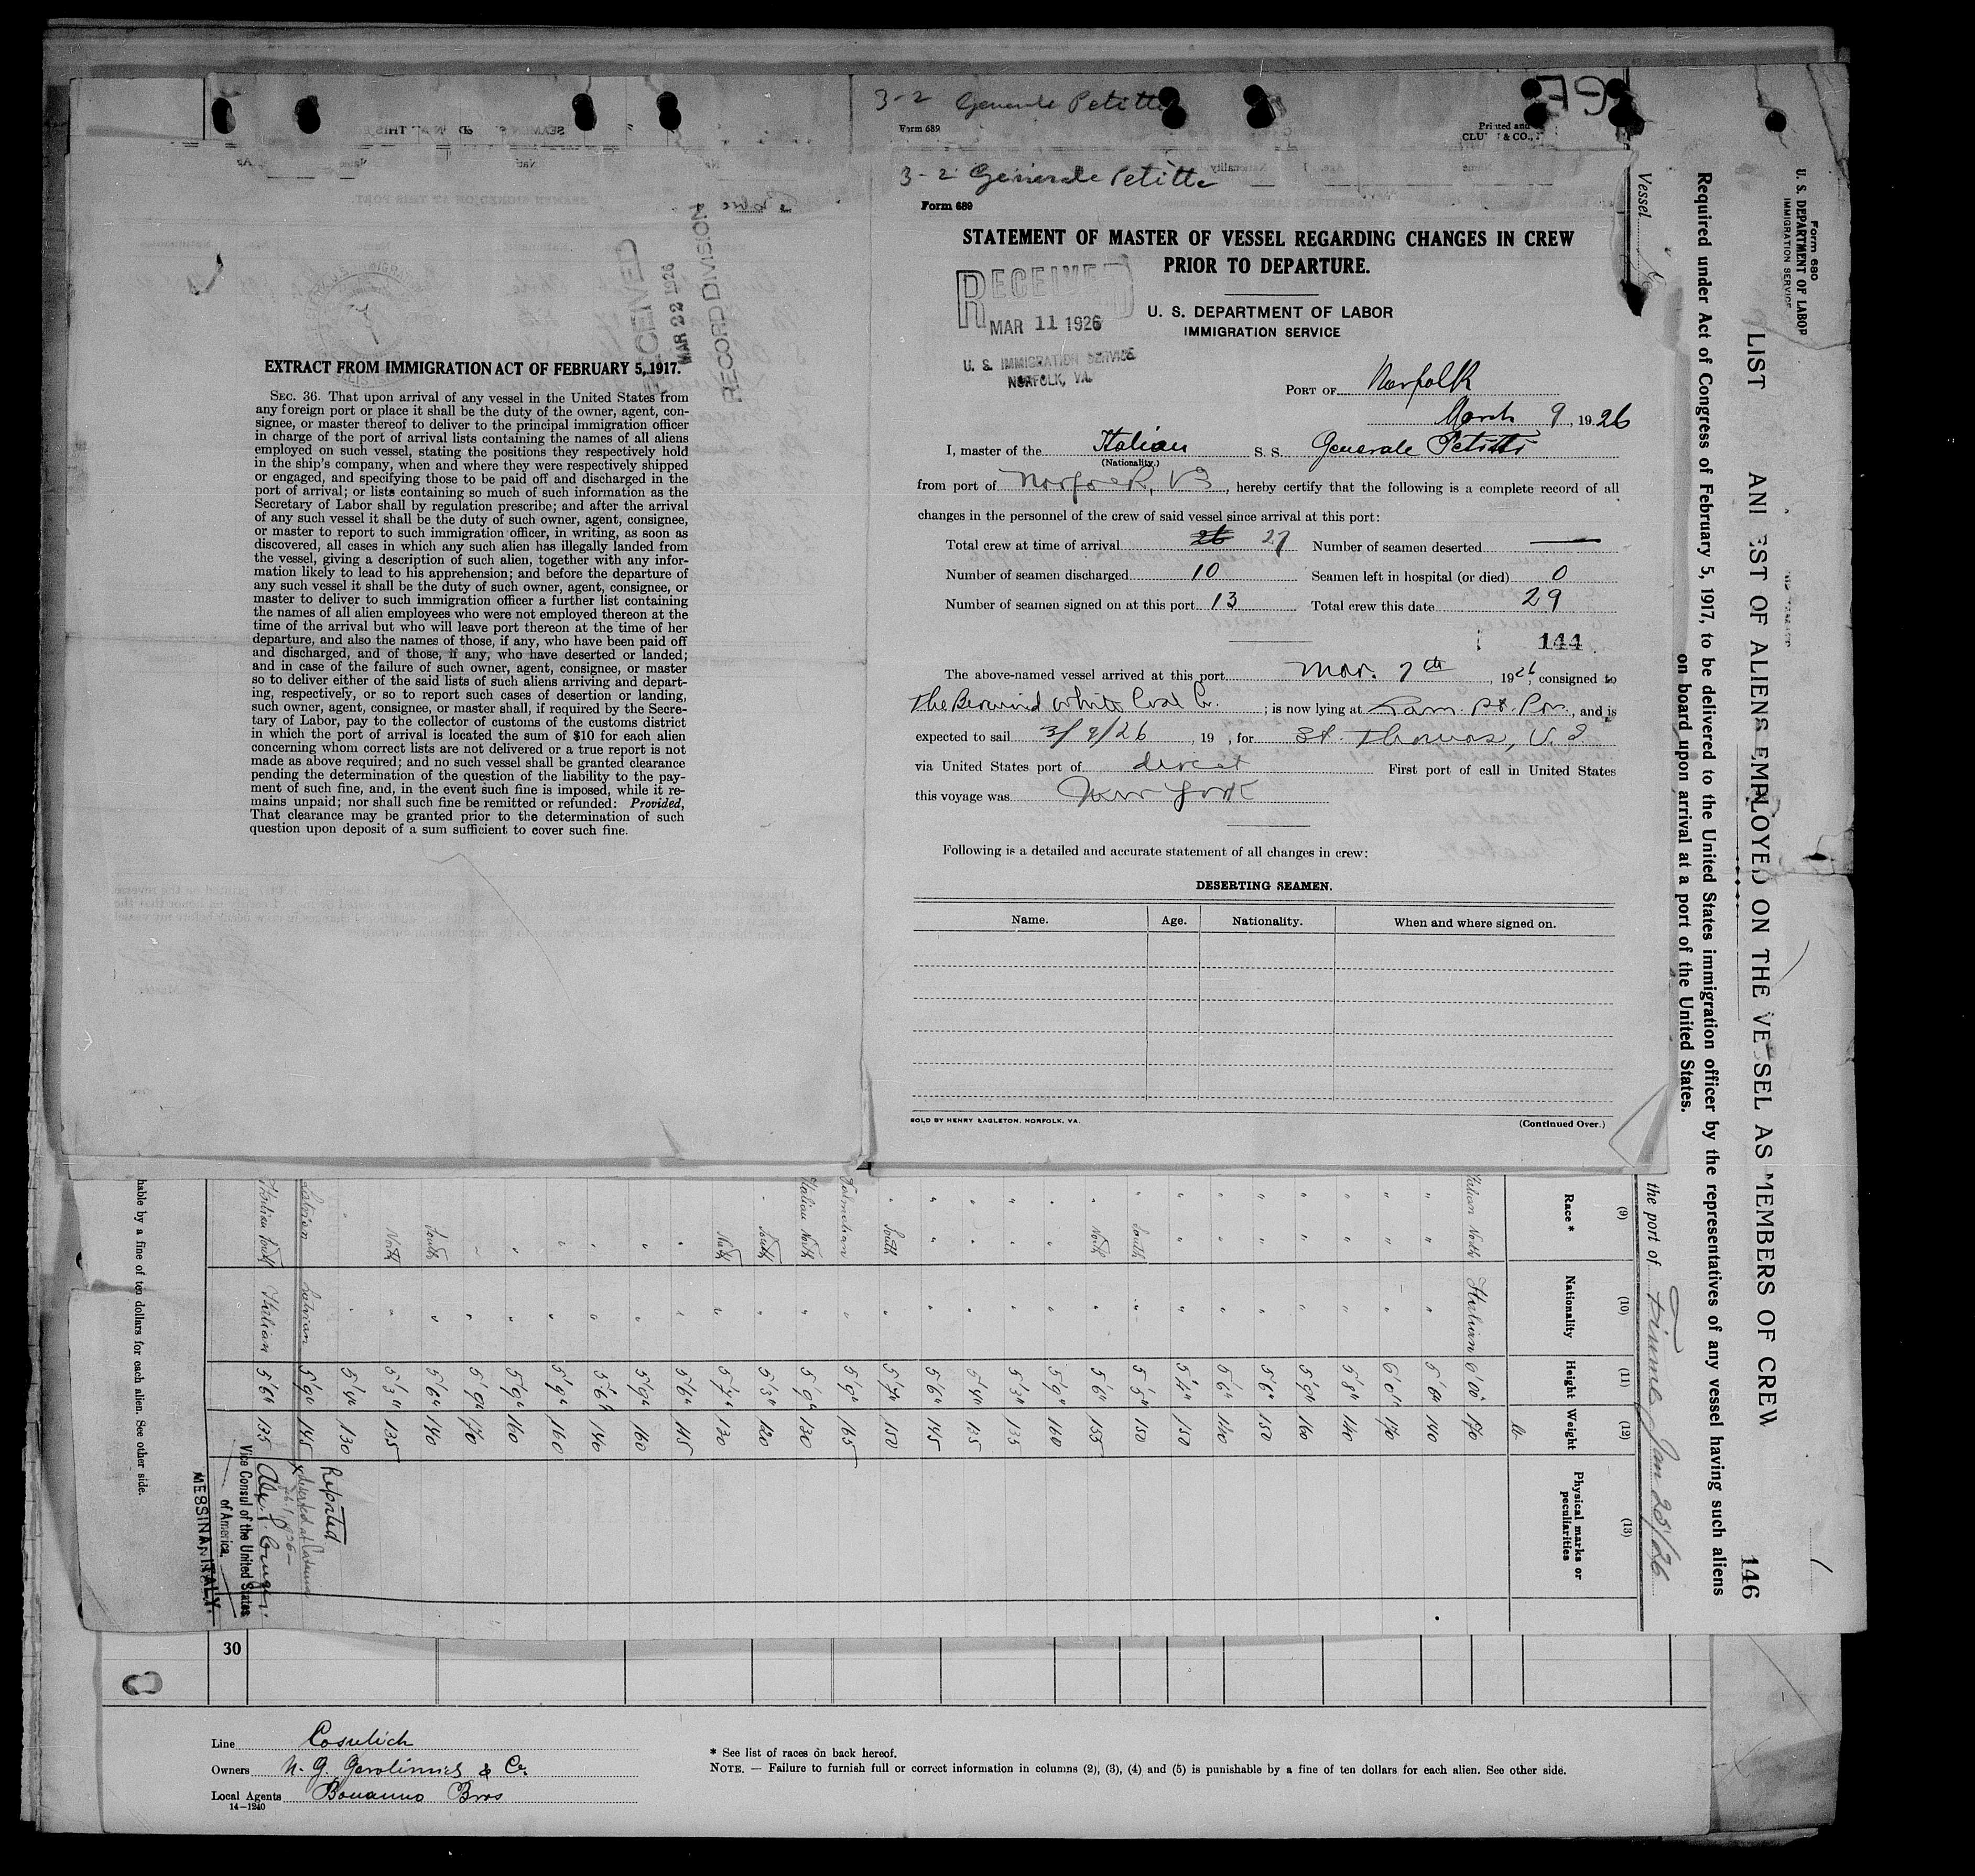 3-2 Generale Petitti
Form 689
3-2 Generale Petitti
Form 689
STATEMENT OF MASTER OF VESSEL REGARDING CHANGES IN CREW
PRIOR TO DEPARTURE.
RECEIVED
MAR 11 1926
U. S. IMMIGRATION SERVICE
NORFOLK, VA.
U. S. DEPARTMENT OF LABOR
IMMIGRATION SERVICE
PORT OF Norfolk
March 9, 1926
I, master of the Italian S. S. Generale Petitti
(Nationality.)
from port of Norfolk, Va, hereby certify that the following is a complete record of all
changes in the personnel of the crew of said vessel since arrival at this port:
Total crew at time of arrival 26 27 Number of seamen deserted —
Number of seamen discharged 10 Seamen left in hospital (or died) 0
Number of seamen signed on at this port 13 Total crew this date 29
144
The above-named vessel arrived at this port Mar. 7th, 1926, consigned to
The Berwind White Coal Co. ; is now lying at Lam. Pt. , and is
expected to sail 3/9/26, 19 , for St. Thomas, V. I
via United States port of direct First port of call in United States
this voyage was New York
Following is a detailed and accurate statement of all changes in crew:
DESERTING SEAMEN.
Name. Age. Nationality. When and where signed on.
SOLD BY HENRY EAGLETON, NORFOLK, VA.
(Continued Over.)
RECEIVED
MAR 22 1926
RECORD DIVISION
EXTRACT FROM IMMIGRATION ACT OF FEBRUARY 5, 1917.
SEC. 36. That upon arrival of any vessel in the United States from
any foreign port or place it shall be the duty of the owner, agent, con-
signee, or master thereof to deliver to the principal immigration officer
in charge of the port of arrival lists containing the names of all aliens
employed on such vessel, stating the positions they respectively hold
in the ship's company, when and where they were respectively shipped
or engaged, and specifying those to be paid off and discharged in the
port of arrival; or lists containing so much of such information as the
Secretary of Labor shall by regulation prescribe; and after the arrival
of any such vessel it shall be the duty of such owner, agent, consignee,
or master to report to such immigration officer, in writing, as soon as
discovered, all cases in which any such alien has illegally landed from
the vessel, giving a description of such alien, together with any infor-
mation likely to lead to his apprehension; and before the departure of
any such vessel it shall be the duty of such owner, agent, consignee, or
master to deliver to such immigration officer a further list containing
the names of all alien employees who were not employed thereon at the
time of the arrival but who will leave port thereon at the time of her
departure, and also the names of those, if any, who have been paid off
and discharged, and of those, if any, who have deserted or landed;
and in case of the failure of such owner, agent, consignee, or master
so to deliver either of the said lists of such aliens arriving and depart-
ing, respectively, or so to report such cases of desertion or landing,
such owner, agent, consignee, or master shall, if required by the Secre-
tary of Labor, pay to the collector of customs of the customs district
in which the port of arrival is located the sum of $10 for each alien
concerning whom correct lists are not delivered or a true report is not
made as above required; and no such vessel shall be granted clearance
pending the determination of the question of the liability to the pay-
ment of such fine, and, in the event such fine is imposed, while it re-
mains unpaid; nor shall such fine be remitted or refunded: Provided,
That clearance may be granted prior to the determination of such
question upon deposit of a sum sufficient to cover such fine.
Form 680
U. S. DEPARTMENT OF LABOR
IMMIGRATION SERVICE
LIST OF ALIENS EMPLOYED ON THE VESSEL AS MEMBERS OF CREW
146
Required under Act of Congress of February 5, 1917, to be delivered to the United States immigration officer by the representatives of any vessel having such aliens
on board upon arrival at a port of the United States.
Vessel
the port of Fiume, Jan 25/26
(9) (10) (11) (12) (13)
Race * Nationality Height Weight Physical marks or peculiarities
lb.
Italian North Italian 6'00" 170
" " 5'6" 140
" " 6'0" 170
" " 5'8" 140
" " 5'9" 160
" " 5'6" 150
" " 5'6" 140
" " 5'4" 150
South " 5'5" 150
North " 5'6" 155
" " 5'9" 160
" " 5'3" 135
" " 5'4" 135
" " 5'6" 145
South " 5'7" 150
Dalmatian " 5'9" 165
Italian North " 5'9" 130
South " 5'3" 120
North " 5'7" 130
" " 5'6" 145
" " 5'9" 160
" " 5'6" 140
" " 5'9" 160
" " 5'9" 160
" " 5'9" 170
South " 5'6" 140
North " 5'3" 135
" " 5'4" 130 Reported
Latvian Latvian 5'9" 145 x deserted at Catania
Italian South Italian 5'6" 135
Vice Consul of the United States
of America.
MESSINA, ITALY.
hable by a fine of ten dollars for each alien. See other side.
30
Line Cosulich
Owners N. G. Gerolimich & Co.
Local Agents Bonanno Bros
14—1240
* See list of races on back hereof.
NOTE. — Failure to furnish full or correct information in columns (2), (3), (4) and (5) is punishable by a fine of ten dollars for each alien. See other side.